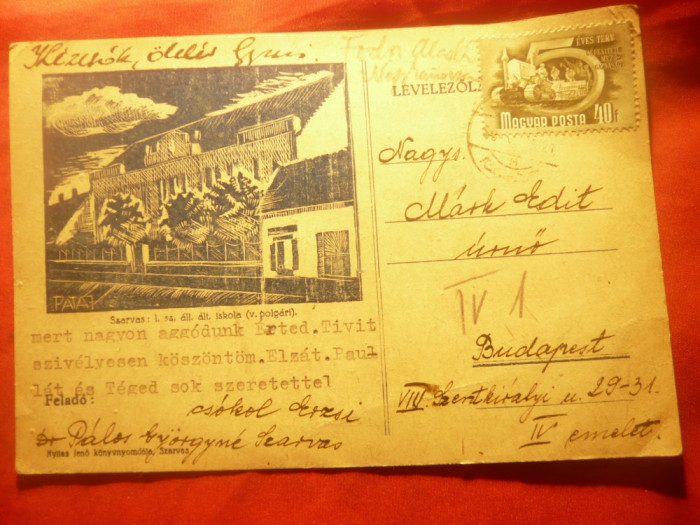 Kézcsók, ölelés Gyuri
Fodor
LEVELEZŐL
5 ÉVES TERV
MAGYAR POSTA 40f
PATAJ
Szarvas: I. sz. áll. ált. iskola (v. polgári).
mert nagyon aggódunk Érted.Tivit
szivélyesen köszöntöm.Elzát.Paul
lát és Téged sok szeretettel
Feladó:
csókol Erzsi
Dr Pálos Györgyné Szarvas
Nyilas Jenő könyvnyomdája, Szarvas
Nagys.
Márk Edit
úrnő
IV 1
Budapest
VIII. Szentkirályi u. 29-31.
IV emelet.